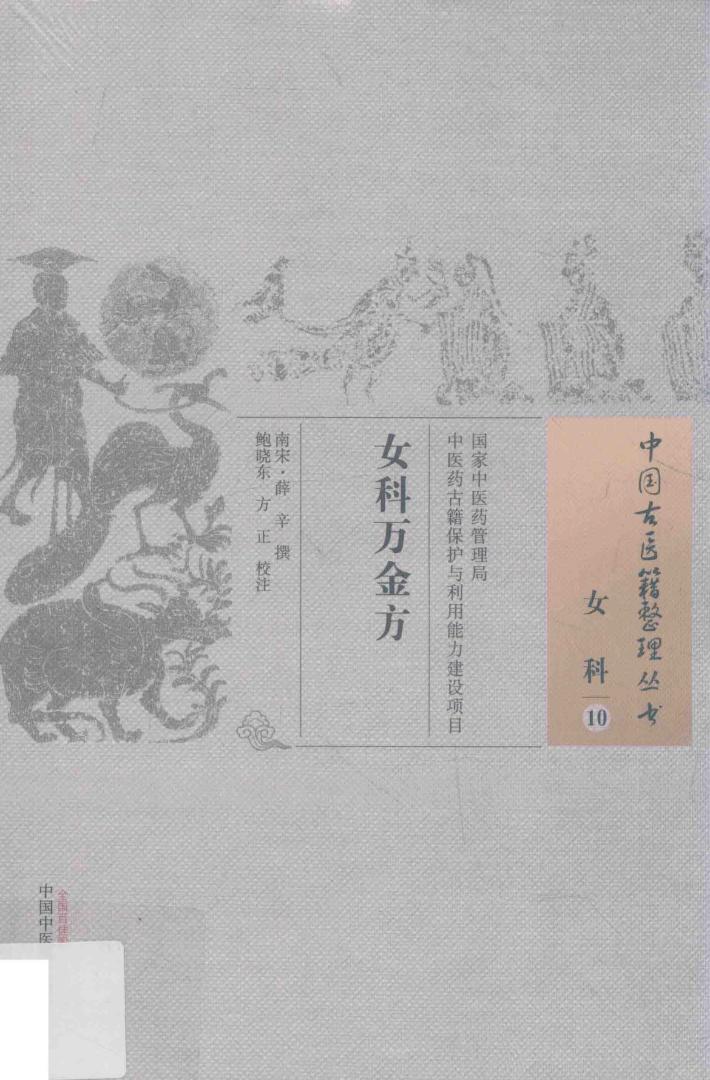 中国古医籍整理丛书
女科
10
国家中医药管理局
中医药古籍保护与利用能力建设项目
女科万金方
南宋·薛 辛 撰
鲍晓东 方 正 校注
全国百佳
中国中医